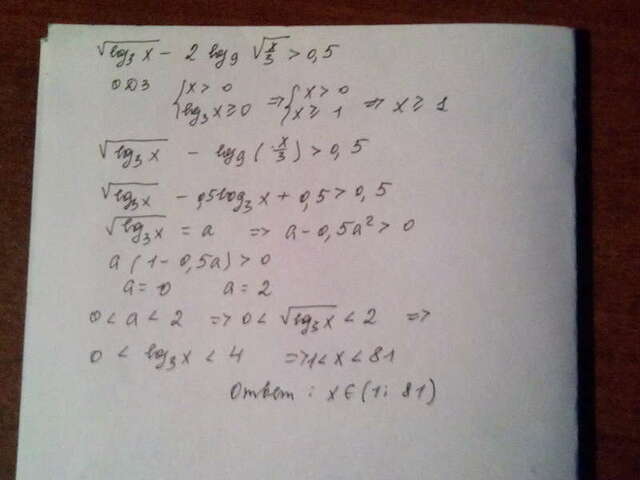 √log₃x − 2 log₉ √(x/3) > 0,5
ОДЗ {x > 0 log₃x ≥ 0 => {x > 0 x ≥ 1 => x ≥ 1
√log₃x − log₉(x/3) > 0,5
√log₃x − 0,5log₃x + 0,5 > 0,5
√log₃x = a => a − 0,5a² > 0
a(1 − 0,5a) > 0
a = 0 a = 2
0 < a < 2 => 0 < √log₃x < 2 =>
0 < log₃x < 4 => 1 < x < 81
Ответ: x ∈ (1; 81)